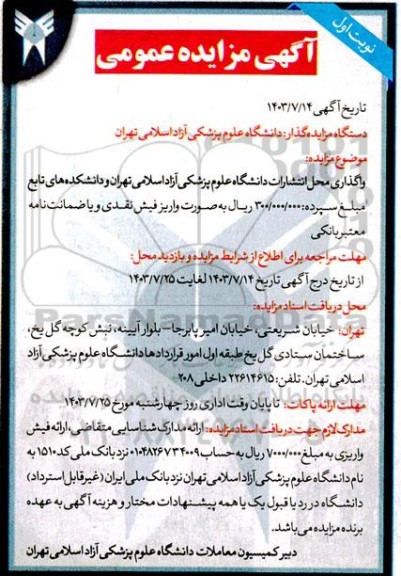 نوبت اول
آگهی مزایده عمومی
تاریخ آگهی ۱۴۰۳/۷/۱۴
دستگاه مزایده‌گذار: دانشگاه علوم پزشکی آزاد اسلامی تهران
موضوع مزایده:
واگذاری محل انتشارات دانشگاه علوم پزشکی آزاد اسلامی تهران و دانشکده‌های تابع
مبلغ سپرده: ۳۰۰/۰۰۰/۰۰۰ ریال به صورت واریز فیش نقدی و یا ضمانت نامه
معتبر بانکی
مهلت مراجعه برای اطلاع از شرایط مزایده و بازدید محل:
از تاریخ درج آگهی تاریخ ۱۴۰۳/۷/۱۴ لغایت ۱۴۰۳/۷/۲۵
محل دریافت اسناد مزایده:
تهران: خیابان شریعتی، خیابان امیر پابرجا- بلوار آیینه، نبش کوچه گل یخ،
ساختمان ستادی گل یخ طبقه اول امور قراردادها دانشگاه علوم پزشکی آزاد
اسلامی تهران. تلفن: ۲۲۶۱۴۶۱۵ داخلی ۲۰۸
مهلت ارائه پاکات: تا پایان وقت اداری روز چهارشنبه مورخ ۱۴۰۳/۷/۲۵
مدارک لازم جهت دریافت اسناد مزایده: ارائه مدارک شناسایی متقاضی، ارائه فیش
واریزی به مبلغ ۷/۰۰۰/۰۰۰ ریال به حساب ۰۱۰۴۸۲۶۷۳۴۰۰۹ نزد بانک ملی کد ۱۵۱۰ به
نام دانشگاه علوم پزشکی آزاد اسلامی تهران نزد بانک ملی ایران (غیرقابل استرداد)
دانشگاه در رد یا قبول یک یا همه پیشنهادات مختار و هزینه آگهی به عهده
برنده مزایده می‌باشد.
دبیر کمیسیون معاملات دانشگاه علوم پزشکی آزاد اسلامی تهران
ParsNamadData